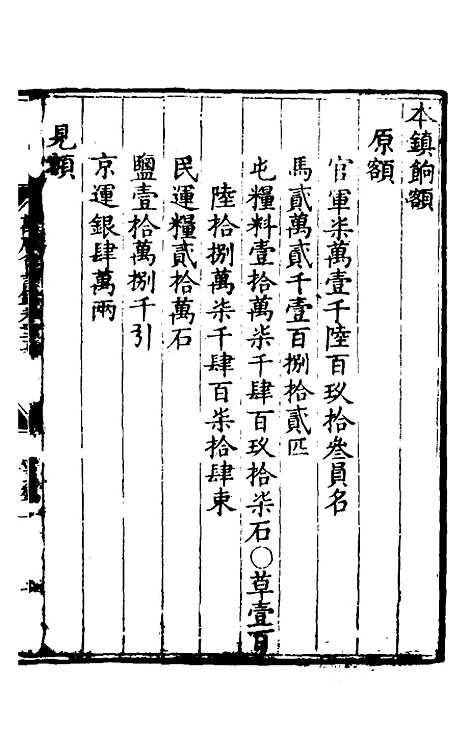 本鎮餉額
原額
官軍柒萬壹千陸百玖拾叄員名
馬貳萬貳千壹百捌拾貳匹
屯糧料壹拾萬柒千肆百玖拾柒石〇草壹百
陸拾捌萬柒千肆百柒拾肆束
民運糧貳拾萬石
鹽壹拾萬捌千引
京運銀肆萬兩
見額